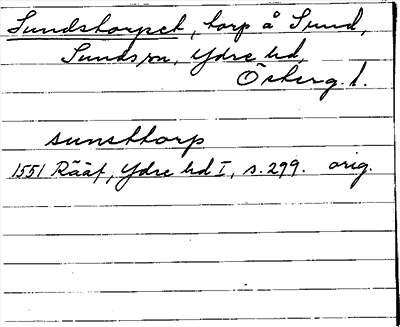 Sundstorpet, torp å Sund,
Sunds sn, Ydre hd,
Österg. l.
sunsttorp
1551 Rääf, Ydre hd I, s. 299. orig.